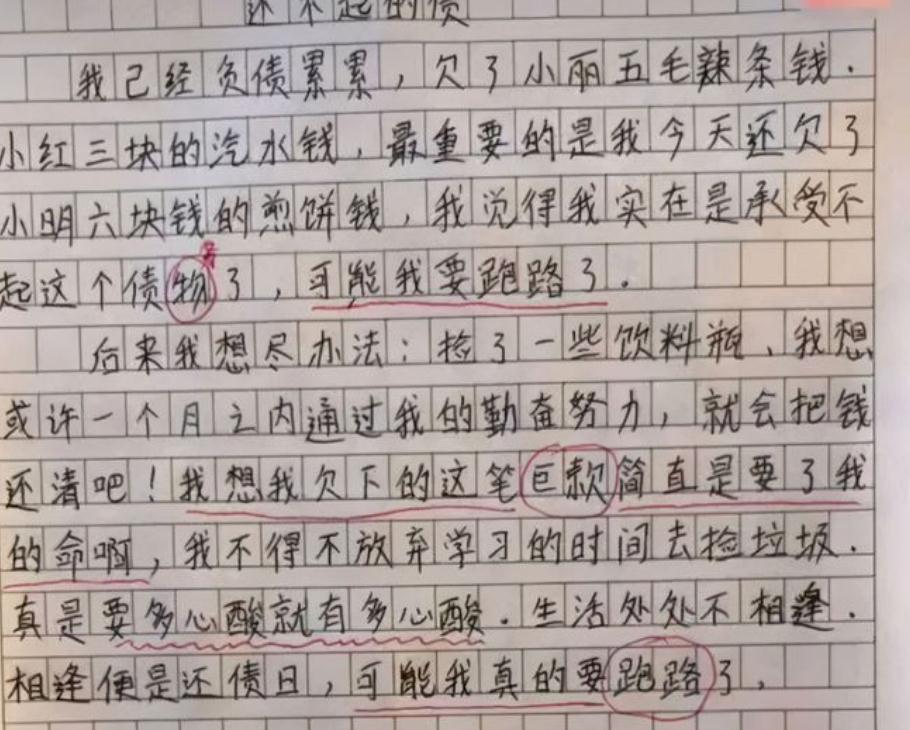 还不起的债
我已经负债累累，欠了小丽五毛辣条钱.
小红三块的汽水钱，最重要的是我今天还欠了
小明六块钱的煎饼钱，我觉得我实在是承受不
起这个债物了，可能我要跑路了.
后来我想尽办法：捡了一些饮料瓶、我想
或许一个月之内通过我的勤奋努力，就会把钱
还清吧！我想我欠下的这笔巨款简直是要了我
的命啊，我不得不放弃学习的时间去捡垃圾.
真是要多心酸就有多心酸.生活处处不相逢.
相逢便是还债日，可能我真的要跑路了，